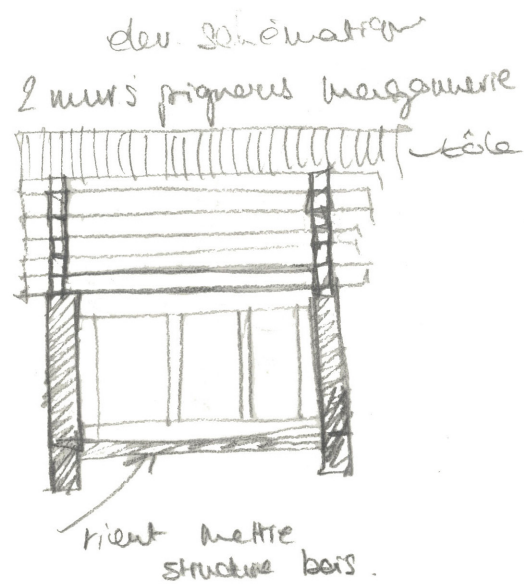 dev schématique
2 murs pignons maçonnerie
tôle
vient mettre
structure bois.